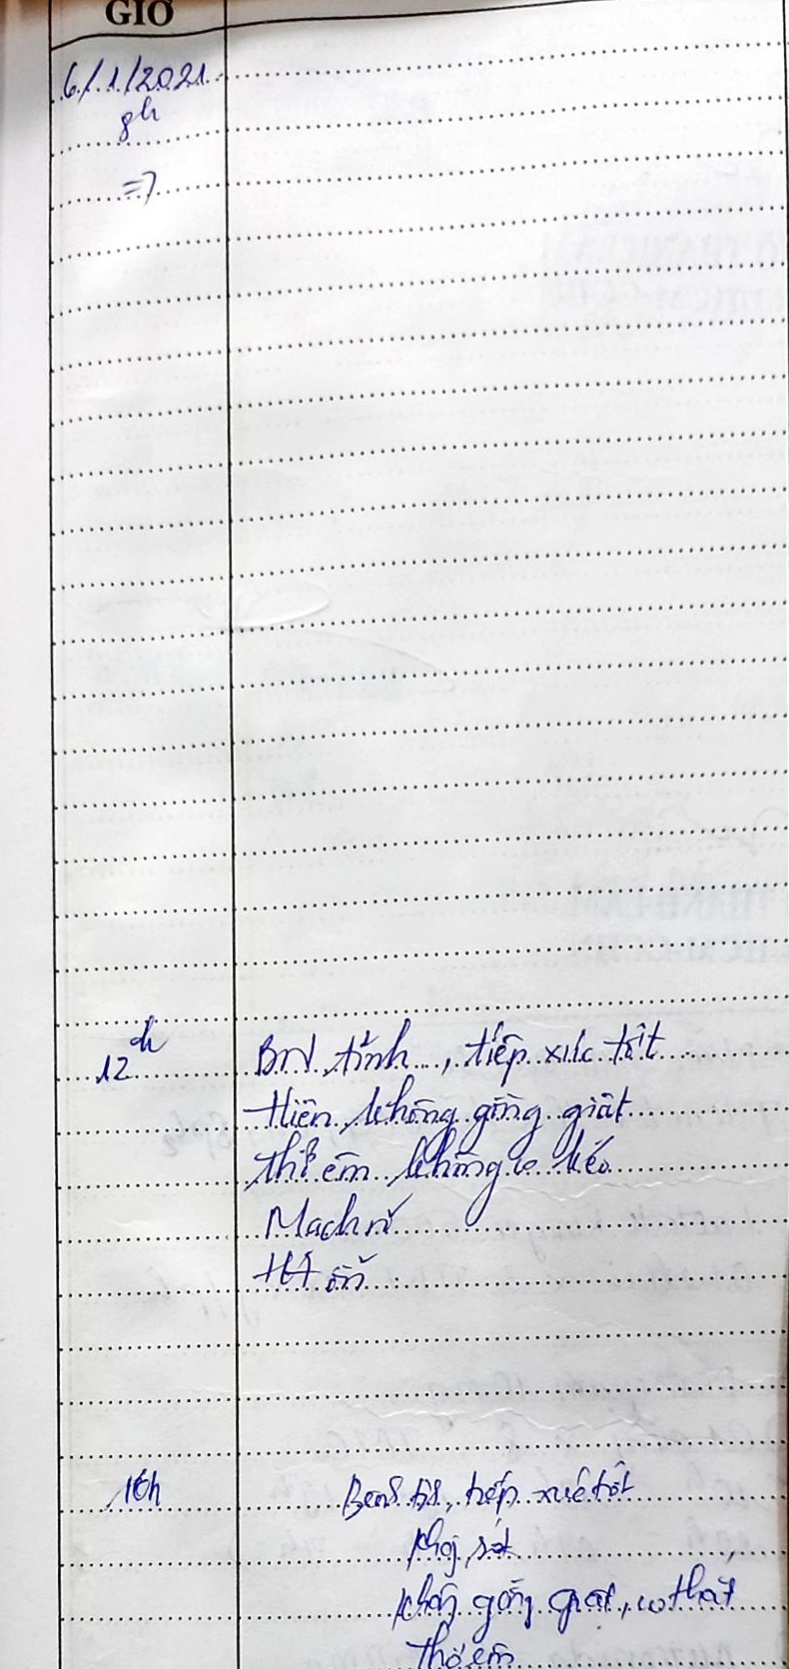 GIỜ
6/1/2021
8h
=>
12h
BN tỉnh, tiếp xúc tốt
Hiện không gồng giật
Thở êm không co kéo
Mạch rõ
HA ổn
16h
tiếp xúc tốt
sốt
gồng giật, co thắt
Thở êm